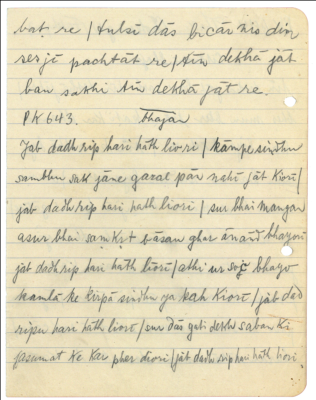 bat re / tulsī dās bicār nis din
ser jī pachtāt re / tīn dekhā jāt
ban sakhi tīn dekhā jāt re.
PK 643. bhajan
Jab dadh rip hari hāth liori / kāmpe sindhu
sambhu sak jāne garal pān nahī jāt Kiorī /
jab dadh rip hari hath liori / sur bhai mangan
asur bhai samkṛt bāsan ghar ānād bhayorī
jāt dadh rip hari hāth liorī / athi ur soc bhayo
kamlā ke kirpā sindhu ya kah Kiorī / jab dad
ripu hari hāth liorī / sur dās gati dekh saban ki
jasamat ke kar pher diorī / jāt dadh rip hari hāth liori.